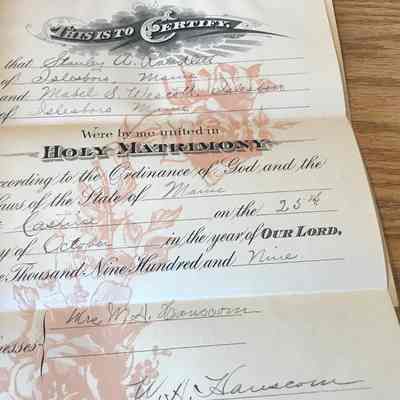 THIS IS TO CERTIFY,
that Stanley A. Randlett
of Islesboro, Maine
and Mabel S. Wescott, Islesboro
of Islesboro Maine
Were by me united in
HOLY MATRIMONY
According to the Ordinance of God and the
Laws of the State of Maine
Castine on the 25th
y of October in the year of OUR LORD,
e Thousand Nine Hundred and Nine
Mrs M. A. Hanscom
esses
W. A. Hanscom